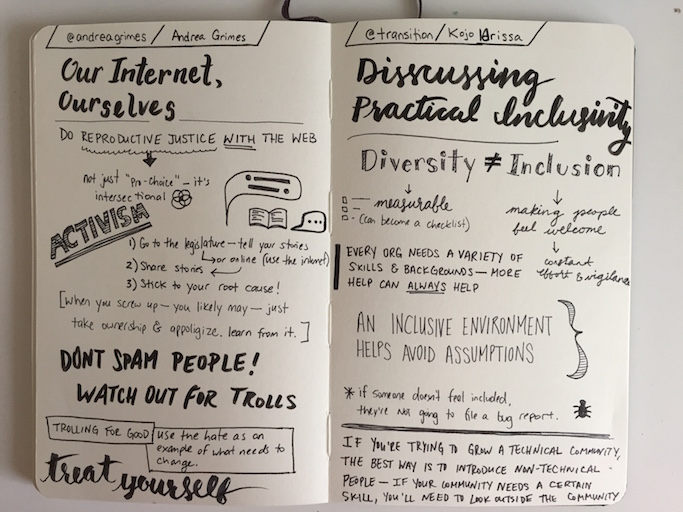 @andreagrimes / Andrea Grimes
Our Internet,
Ourselves
DO REPRODUCTIVE JUSTICE WITH THE WEB
not just "Pro-Choice" — it's
intersectional
ACTIVISM
1) Go to the legislature — tell your stories
or online (use the internet)
2) Share stories
3) Stick to your root cause!
[when you screw up — you likely may — just
take ownership & appoligize. learn from it.]
DONT SPAM PEOPLE!
WATCH OUT FOR TROLLS
TROLLING FOR GOOD
use the hate as an
example of what needs to
change.
treat yourself
@transition / Kojo Idrissa
Disscussing
Practical Inclusivity
Diversity ≠ Inclusion
measurable
(can become a checklist)
making people
feel welcome
constant
effort & vigilance
EVERY ORG NEEDS A VARIETY OF
SKILLS & BACKGROUNDS — MORE
HELP CAN ALWAYS HELP
AN INCLUSIVE ENVIRONMENT
HELPS AVOID ASSUMPTIONS
* if someone doesn't feel included,
they're not going to file a bug report.
IF YOU'RE TRYING TO GROW A TECHNICAL COMMUNITY,
THE BEST WAY IS TO INTRODUCE NON-TECHNICAL
PEOPLE — IF YOUR COMMUNITY NEEDS A CERTAIN
SKILL, YOU'LL NEED TO LOOK OUTSIDE THE COMMUNITY